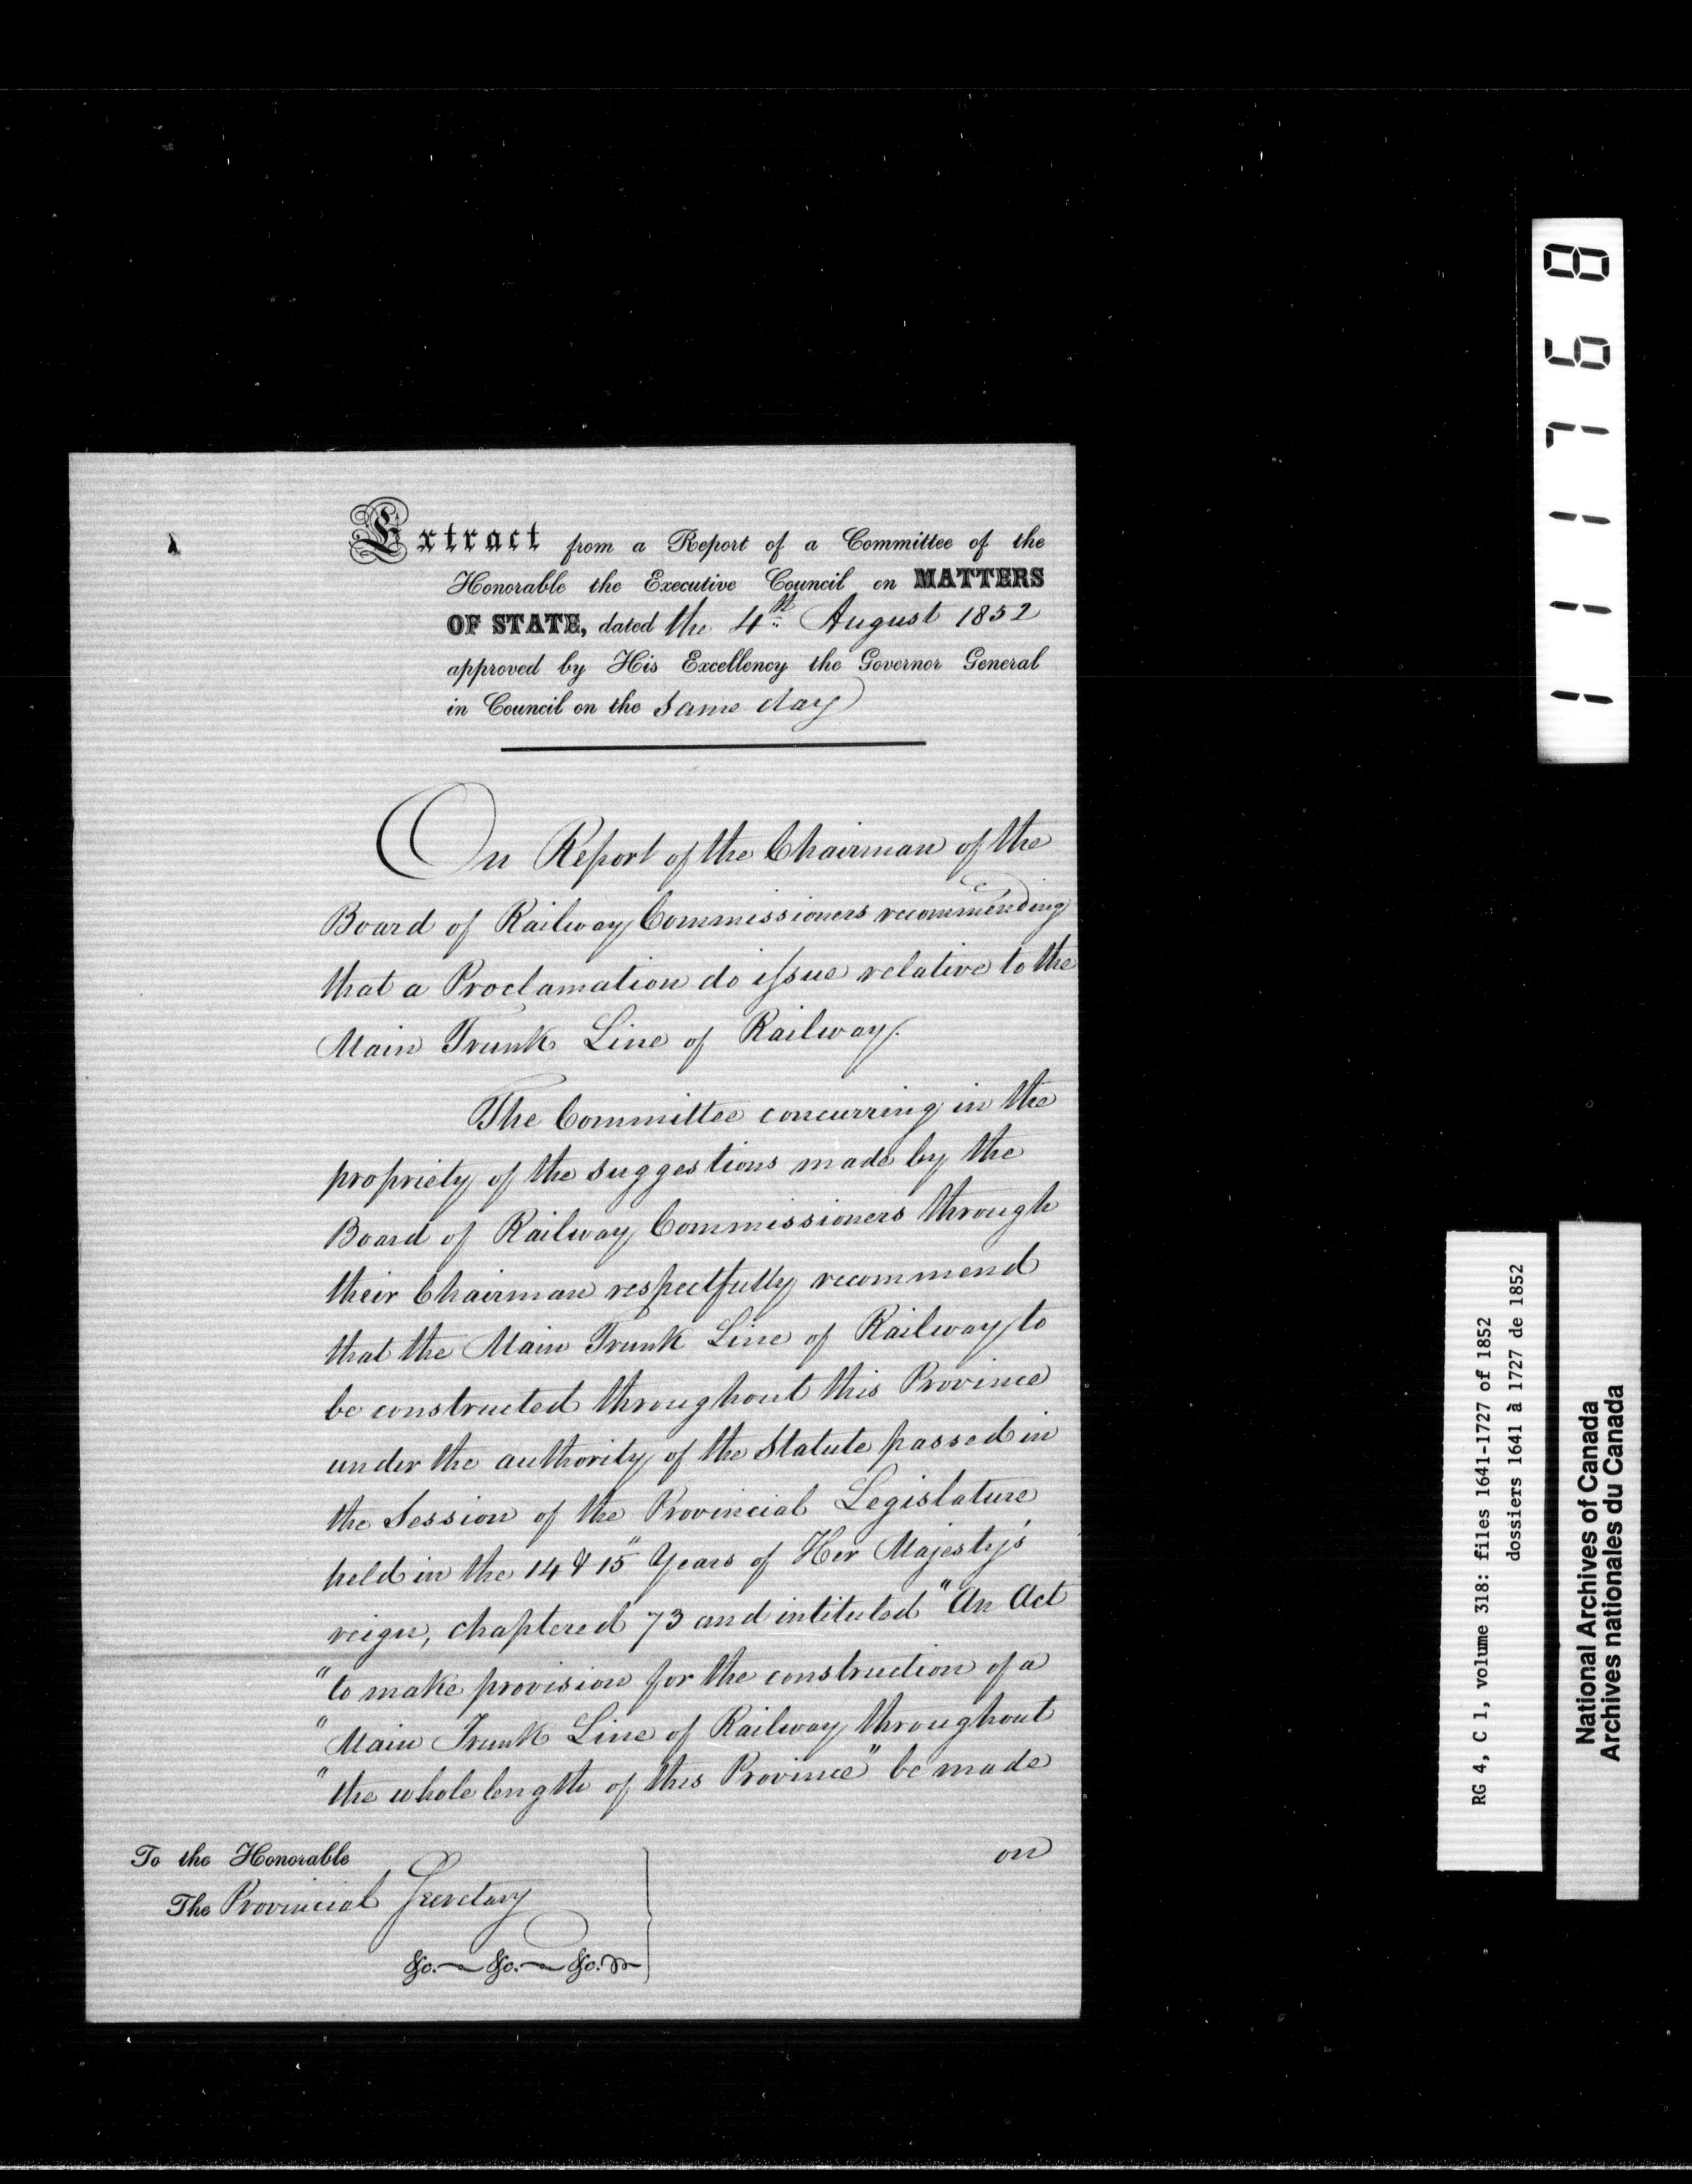 Extract from a Report of a Committee of the
Honorable the Executive Council on MATTERS
OF STATE, dated the 4th August 1852
approved by His Excellency the Governor General
in Council on the same day
On Report of the Chairman of the
Board of Railway Commissioners recommending
that a Proclamation do issue relative to the
Main Trunk Line of Railway.
The Committee concurring in the
propriety of the suggestions made by the
Board of Railway Commissioners through
their Chairman respectfully recommend
that the Main Trunk Line of Railway to
be constructed throughout this Province
under the authority of the Statute passed in
the Session of the Provincial Legislature
held in the 14 & 15" Years of Her Majesty's
reign, chaptered 73 and intituled "An Act
"to make provision for the construction of a
"Main Trunk Line of Railway throughout
"the whole length of this Province" be made
on
To the Honorable
The Provincial Secretary
&c. &c. &c.
111768
RG 4, C 1, volume 318: files 1641-1727 of 1852
dossiers 1641 à 1727 de 1852
National Archives of Canada
Archives nationales du Canada